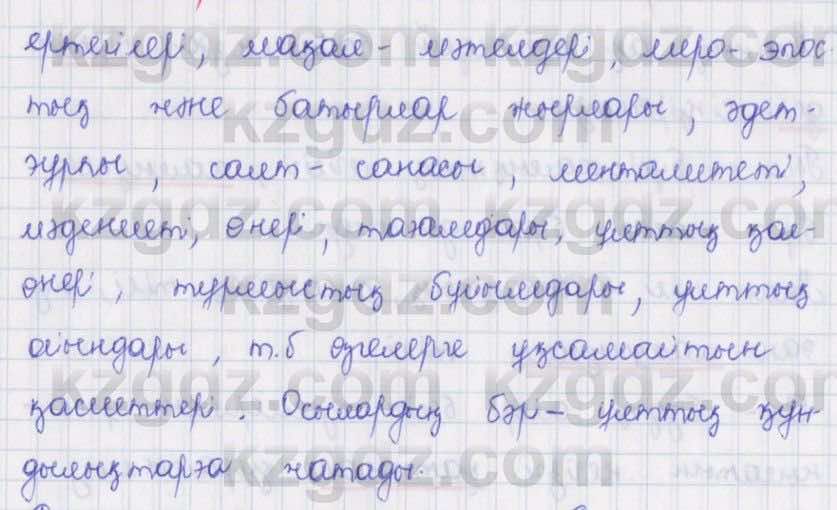 ертегілері, мақал - мәтелдері, лиро- эпос
тық және батырлар жырлары, әдет-
ғұрпы, салт - санасы, менталитеті,
мәдениеті, өнері, тағамдары, ұлттық қол-
өнері, тұрмыстық бұйымдары, ұлттық
ойындары, т.б өзгелерге ұқсамайтын
қасиеттері. Осылардың бәрі - ұлттық құн-
дылықтарға жатады.
kzgdz.com
kzgdz.com
kzgdz.com
kzgdz.com